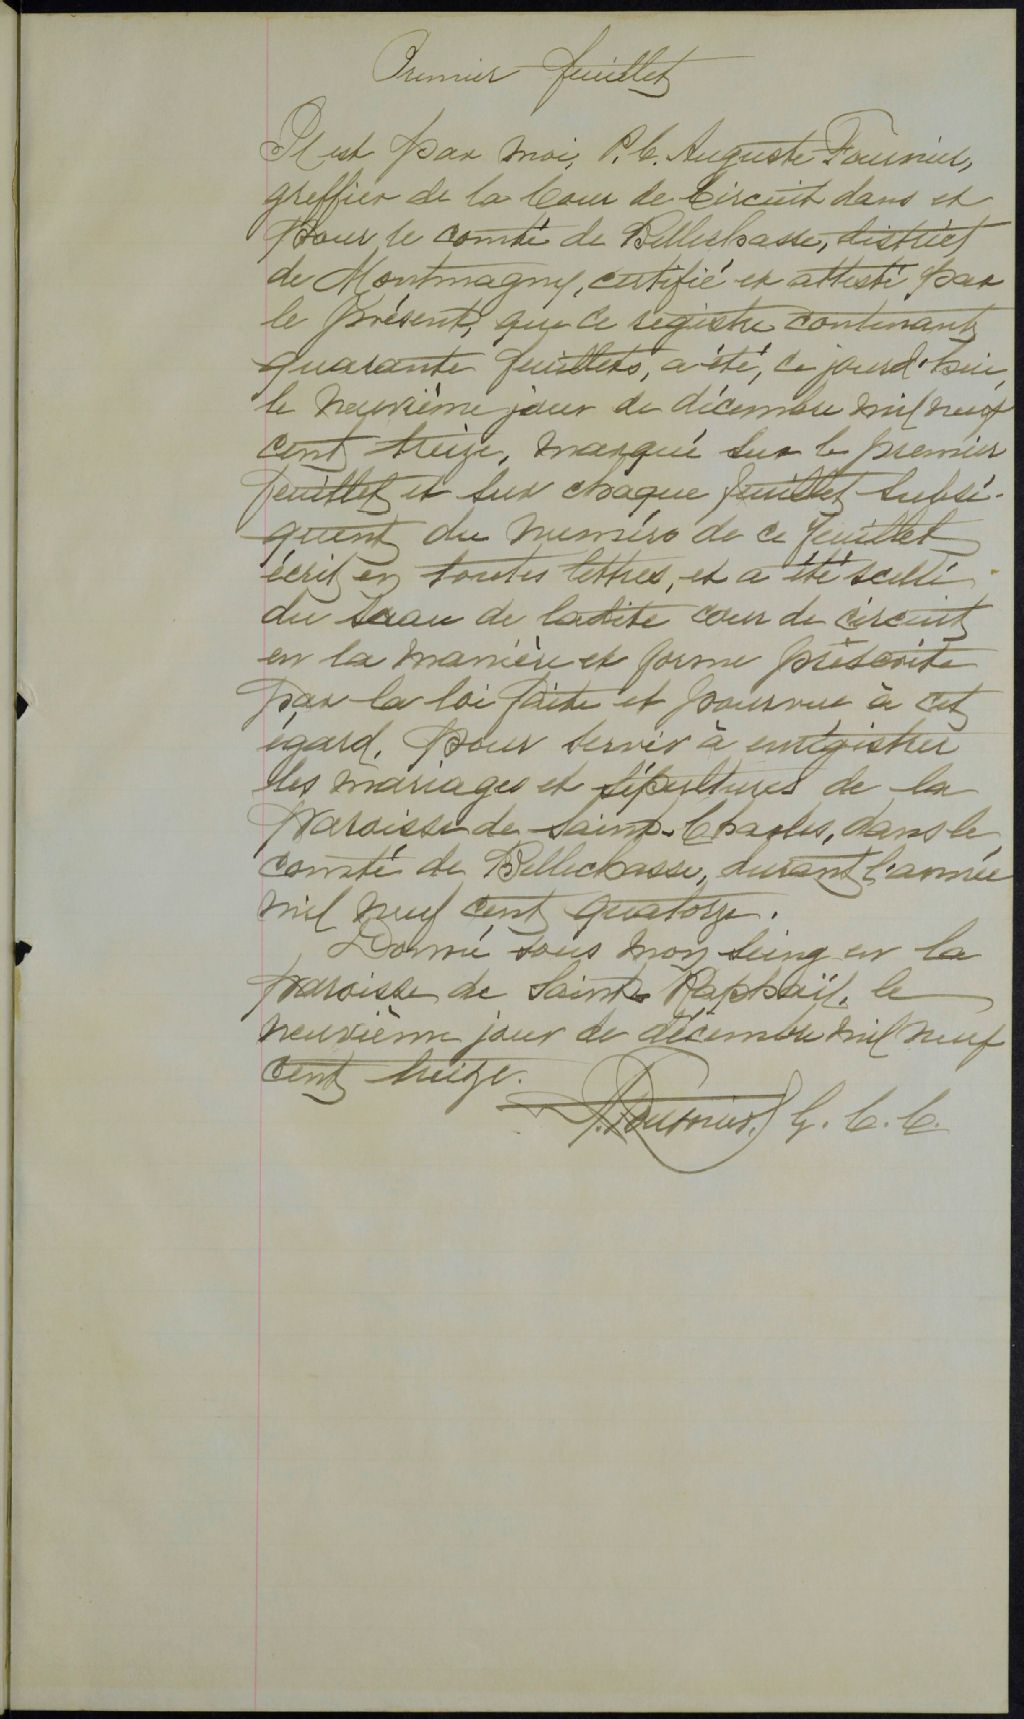 Premier feuillet
Il est par moi, P. C. Auguste Fournier,
greffier de la Cour de Circuit dans et
pour le comté de Bellechasse, district
de Montmagny, certifié et attesté par
le présent, que ce registre contenant
quarante feuillets, a été, ce jourd'hui,
le neuvième jour de décembre mil neuf
cent treize, marqué sur le premier
feuillet et sur chaque feuillet subsé-
quent du numéro de ce feuillet
écrit en toutes lettres, et a été scellé
du sceau de ladite cour de circuit
en la manière et forme préscrite
par la loi faite et pourvue à cet
égard, pour servir à enrégistrer
les mariages et sépultures de la
paroisse de Saint-Charles, dans le
comté de Bellechasse, durant l'année
mil neuf cent quatorze.
Donné sous mon seing en la
paroisse de Saint-Raphaël, le
neuvième jour de décembre mil neuf
cent treize.
A. Fournier, G. C. C.